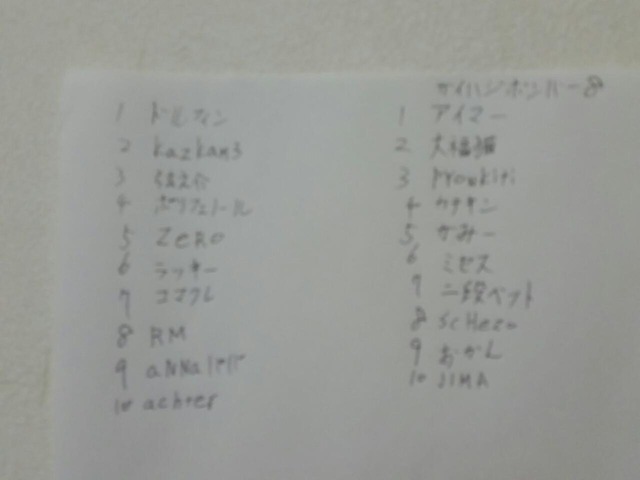 1 ドルフィン
2 kazkam3
3
4 ポリフェノール
5 ZERO
6 ラッキー
7 コマクレ
8 RM
9
10 achter
サイハジボンバー8
1 アイマー
2 大福猫
3
4 カナキン
5 がみー
6 ミセス
7 二段ベット
8 scHezo
9 おかん
10 JIMA